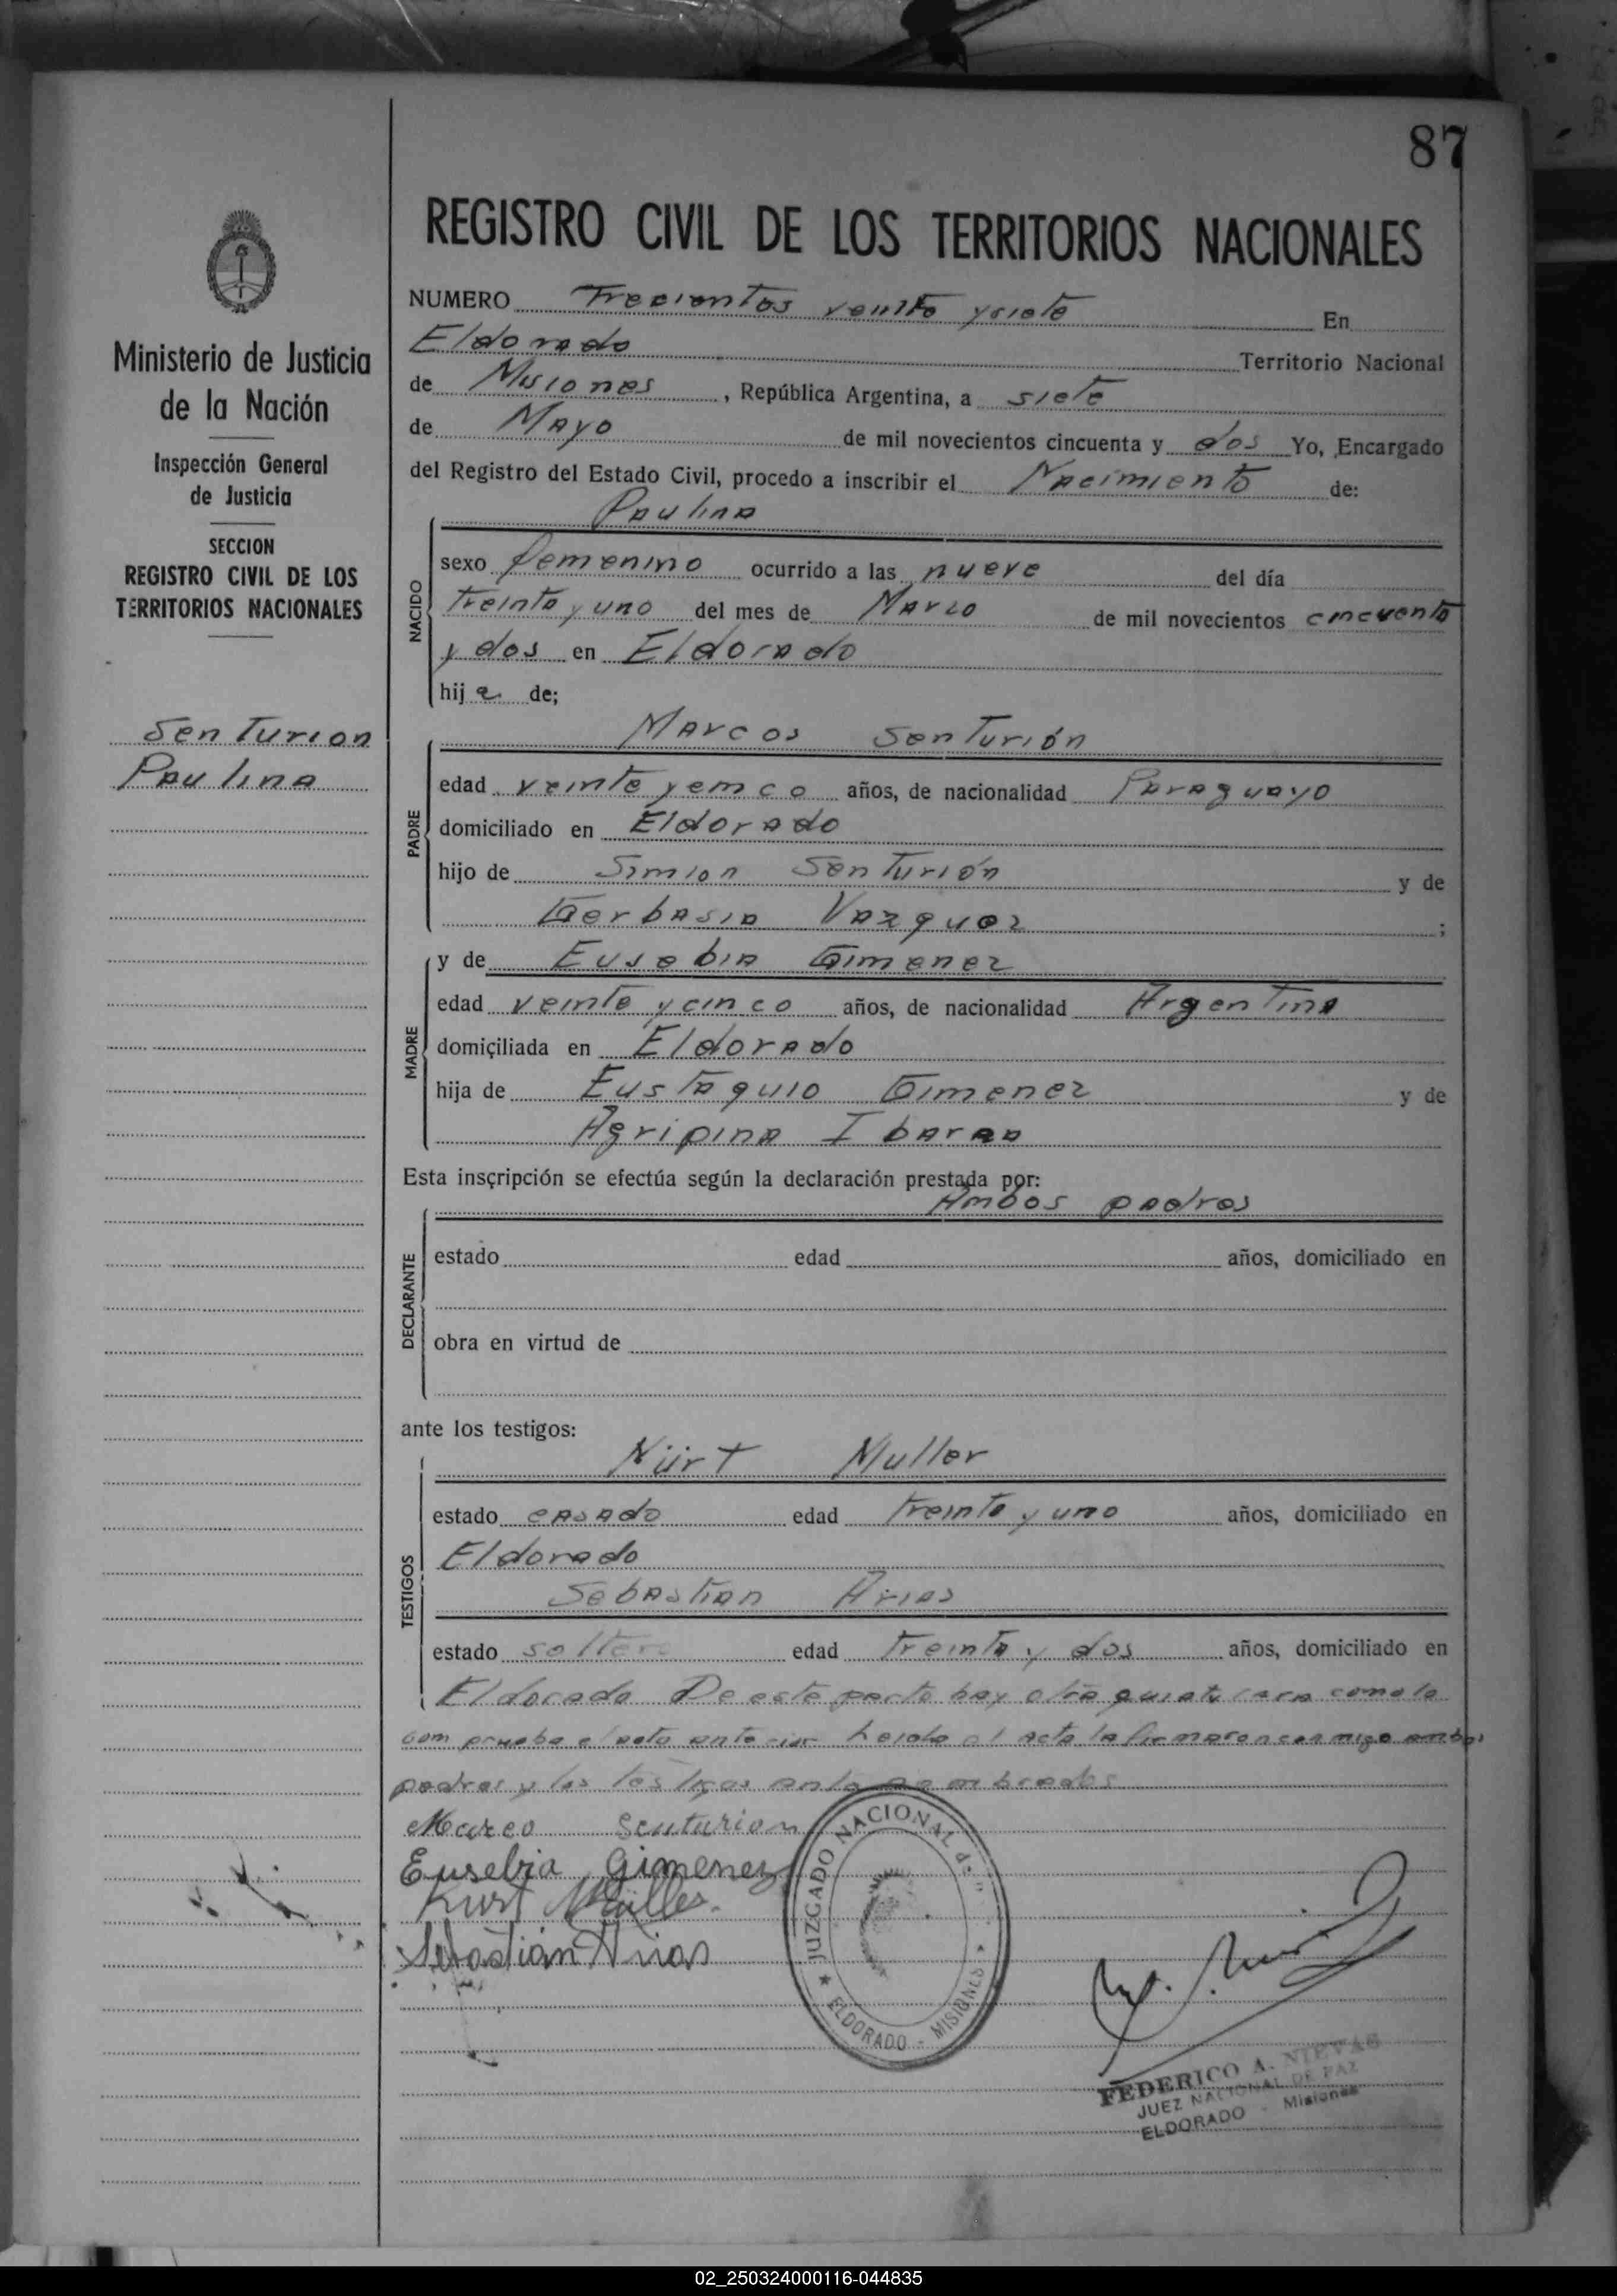 87
REGISTRO CIVIL DE LOS TERRITORIOS NACIONALES
Ministerio de Justicia
de la Nación
Inspección General
de Justicia
SECCION
REGISTRO CIVIL DE LOS
TERRITORIOS NACIONALES
Senturion
Paulina
NUMERO Trecientos veinte ysiete En
Eldorado Territorio Nacional
de Misiones, República Argentina, a siete
de Mayo de mil novecientos cincuenta y dos Yo, Encargado
del Registro del Estado Civil, procedo a inscribir el Nacimiento de:
NACIDO
Paulina
sexo femenino ocurrido a las nueve del día
treinta y uno del mes de Marzo de mil novecientos cincuenta
y dos en Eldorado
hija de;
PADRE
Marcos Senturión
edad veinte y cinco años, de nacionalidad Paraguayo
domiciliado en Eldorado
hijo de Simion Senturión y de
Gerbasia Vazquez ;
MADRE
y de Eusebia Gimenez
edad veinte y cinco años, de nacionalidad Argentina
domiciliada en Eldorado
hija de Eustaquio Gimenez y de
Agripina Ibarra
Esta inscripción se efectúa según la declaración prestada por:
DECLARANTE
Ambos padres
estado edad años, domiciliado en
obra en virtud de
ante los testigos:
TESTIGOS
Kürt Muller
estado casado edad treinta y uno años, domiciliado en
Eldorado
Sebastian Arias
estado soltero edad treinta y dos años, domiciliado en
Eldorado De este parto hay otra como lo
comprueba el acta anterior Leida el acta la firmaron conmigo ambos
padres y los testigos
Marco Senturion
Eusebia Gimenez
Kurt Müller
Sebastián Arias
JUZGADO NACIONAL de
ELDORADO - MISIONES
FEDERICO A. NIEVAS
JUEZ NACIONAL DE PAZ
ELDORADO - Misiones
02_250324000116-044835